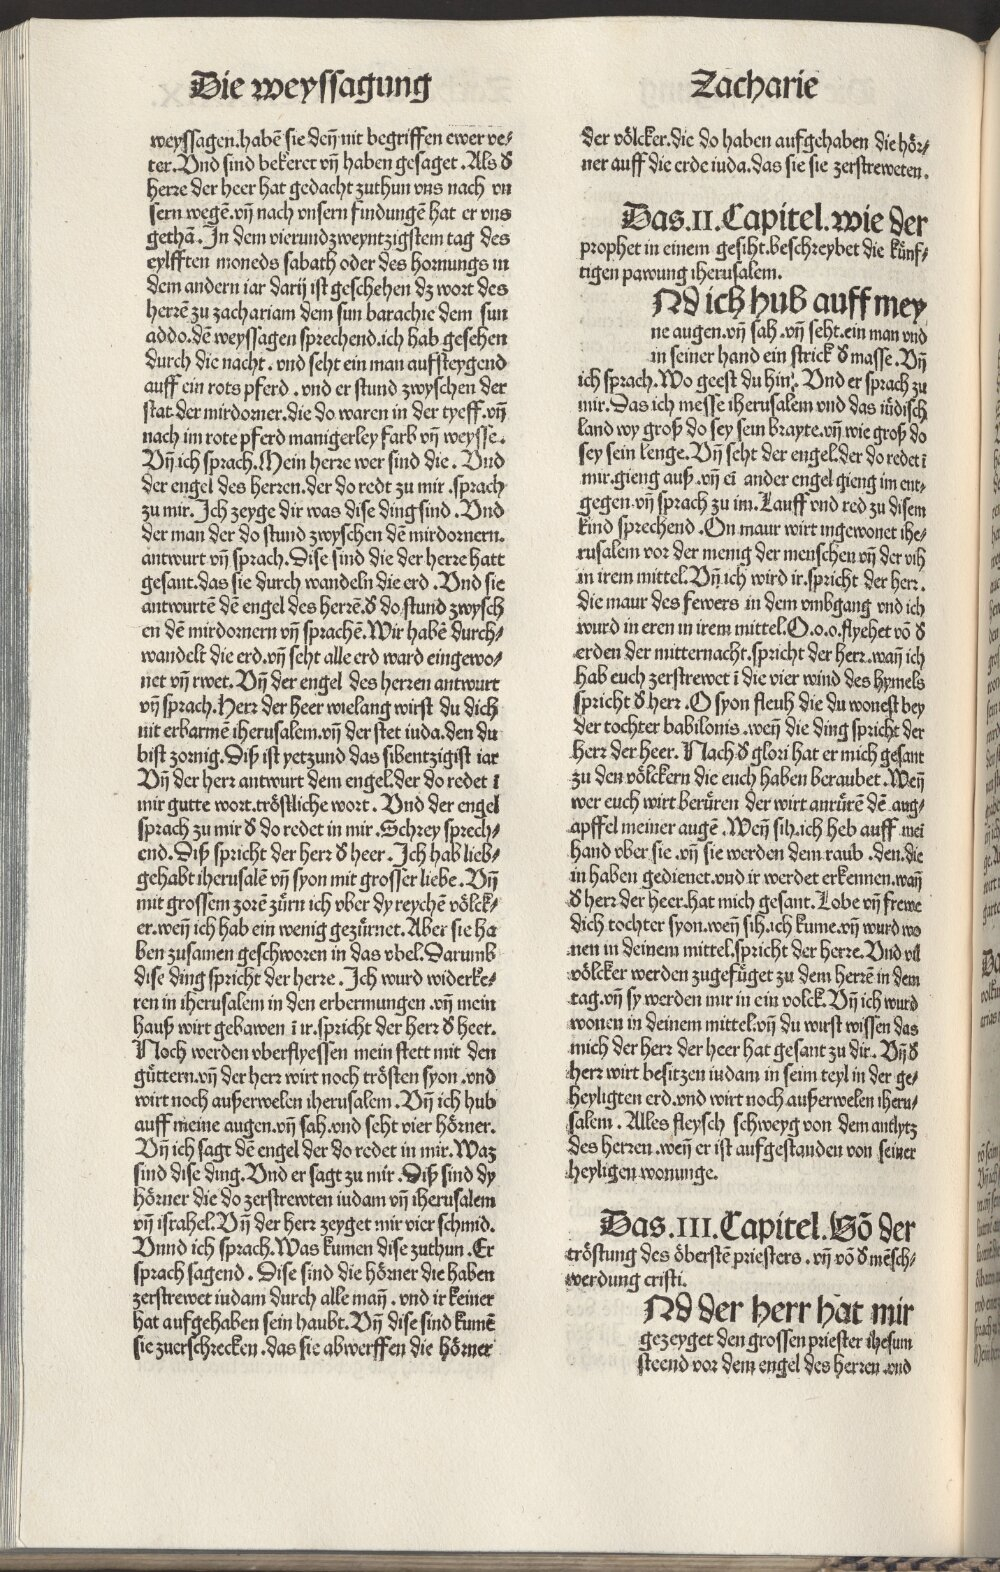 Die weyssagung
Zacharie
weyssagen.habẽ sie deñ nit begriffen ewer ve⸗
ter.Vnd sind bekeret vñ haben gesaget.Als d̕
herre der heer hat gedacht zuthun vns nach vn
sern wegẽ.vñ nach vnsern findungẽ hat er vns
gethã.In dem vierundzweyntzigstem tag des
eylfften moneds sabath oder des hornungs in
dem andern iar darij ist geschehen dz wort des
herrẽ zu zachariam dem sun barachie dem sun
addo.dẽ weyssagen sprechend.ich hab gesehen
durch die nacht.vnd seht ein man aufsteygend
auff ein rots pferd.vnd er stund zwyschen der
stat der mirdorner.die do waren in der tyeff.vñ
nach im rote pferd manigerley farb vñ weysse.
Vñ ich sprach.Mein herre wer sind die.Vnd
der engel des herren.der do redt zu mir.sprach
zu mir.Ich zeyge dir was dise ding sind.Vnd
der man der do stund zwyschen dẽ mirdornern.
antwurt vñ sprach.Dise sind die der herre hatt
gesant.das sie durch wandeln die erd.Vnd sie
antwurtẽ dẽ engel des herrẽ.d̕ do stund zwysch
en dẽ mirdornern vñ sprachẽ.Wir habẽ durch⸗
wandelt die erd.vñ seht alle erd ward eingewo⸗
net vñ rwet.Vñ der engel des herren antwurt
vñ sprach.Herr der heer wielang wirst du dich
nit erbarmẽ iherusalem.vñ der stet iuda.den du
bist zornig.Diß ist yetzund das sibentzigist iar
Vñ der herr antwurt dem engel.der do redet ĩ
mir gutte wort.tröstliche wort.Vnd der engel
sprach zu mir d̕ do redet in mir.Schrey sprech⸗
end.Diß spricht der herr d̕ heer.Ich hab lieb⸗
gehabt iherusalẽ vñ syon mit grosser liebe.Vñ
mit grossem zorẽ zürn ich vber dy reychẽ völck⸗
er.weñ ich hab ein wenig gezürnet.Aber sie ha
ben zusamen geschworen in das vbel.Darumb
dise ding spricht der herre.Ich wurd widerke⸗
ren in iherusalem in den erbermungen.vñ mein
hauß wirt gebawen ĩ ir.spricht der herr d̕ heer.
Noch werden vberflyessen mein stett mit den
güttern.vñ der herr wirt noch trösten syon.vnd
wirt noch außerwelen iherusalem.Vñ ich hub
auff meine augen.vñ sah.vnd seht vier hörner.
Vñ ich sagt dẽ engel der do redet in mir.Waz
sind dise ding.Vnd er sagt zu mir.Diß sind dy
hörner die do zerstrewten iudam vñ iherusalem
vñ israhel.Vñ der herr zeyget mir vier schmid.
Vnnd ich sprach.Was kumen dise zuthun.Er
sprach sagend.Dise sind die hörner die haben
zerstrewet iudam durch alle mañ.vnd ir keiner
hat aufgehaben sein haubt.Vñ dise sind kumẽ
sie zuerschrecken.das sie abwerffen die hörner
der völcker.die do haben aufgehaben die hör⸗
ner auff die erde iuda.das sie sie zerstreweten.
Das.II.Capitel.wie der
prophet in einem gesiht.beschreybet die künf⸗
tigen pawung iherusalem.
ND ich hub auff mey
ne augen.vñ sah.vñ seht.ein man vnd
in seiner hand ein strick d̕ masse.Vñ
ich sprach.Wo geest du hin.Vnd er sprach zu
mir.Das ich messe iherusalem vnd das iüdisch
land wy groß do sey sein brayte.vñ wie groß do
sey sein lenge.Vñ seht der engel.der do redet ĩ
mir.gieng auß.vñ eĩ ander engel gieng im ent⸗
gegen.vñ sprach zu im.Lauff vnd red zu disem
kind sprechend.On maur wirt ingewonet ihe⸗
rusalem vor der menig der menschen vñ der vih
in irem mittel.Vñ ich wird ir.spricht der herr.
die maur des fewers in dem vmbgang vnd ich
wurd in eren in irem mittel.O.o.o.flyehet võ d̕
erden der mitternacht.spricht der herr.wañ ich
hab euch zerstrewet ĩ die vier wind des hymels
spricht d̕ herr.O syon fleuh die du wonest bey
der tochter babilonis.weñ die ding spricht der
herr der heer.Nach d̕ glori hat er mich gesant
zu den völckern die euch haben beraubet.Weñ
wer euch wirt berüren der wirt anrürẽ dẽ aug⸗
apffel meiner augẽ.Weñ sih.ich heb auff mei
hand vber sie.vñ sie werden dem raub.den.die
in haben gedienet.vnd ir werdet erkennen.wañ
d̕ herr der heer.hat mich gesant.Lobe vñ frewe
dich tochter syon.weñ sih.ich kume.vñ wurd wo
nen in deinem mittel.spricht der herre.Vnd vil
völcker werden zugefüget zu dem herrẽ in dem
tag.vñ sy werden mir in ein volck.Vñ ich wurd
wonen in deinem mittel.vñ du wirst wissen das
mich der herr der heer hat gesant zu dir.Vñ d̕
herr wirt besitzen iudam in seim teyl in der ge⸗
heyligten erd.vnd wirt noch außerwelen iheru⸗
salem.Alles fleysch schweyg von dem antlytz
des herren.weñ er ist aufgestanden von seiner
heyligen wonunge.
Das.III.Capitel.Võ der
tröstung des öberstẽ priesters.vñ võ d̕ mẽsch⸗
werdung cristi.
ND der herr hat mir
gezeyget den grossen priester ihesum
steend vor dem engel des herren.vnd